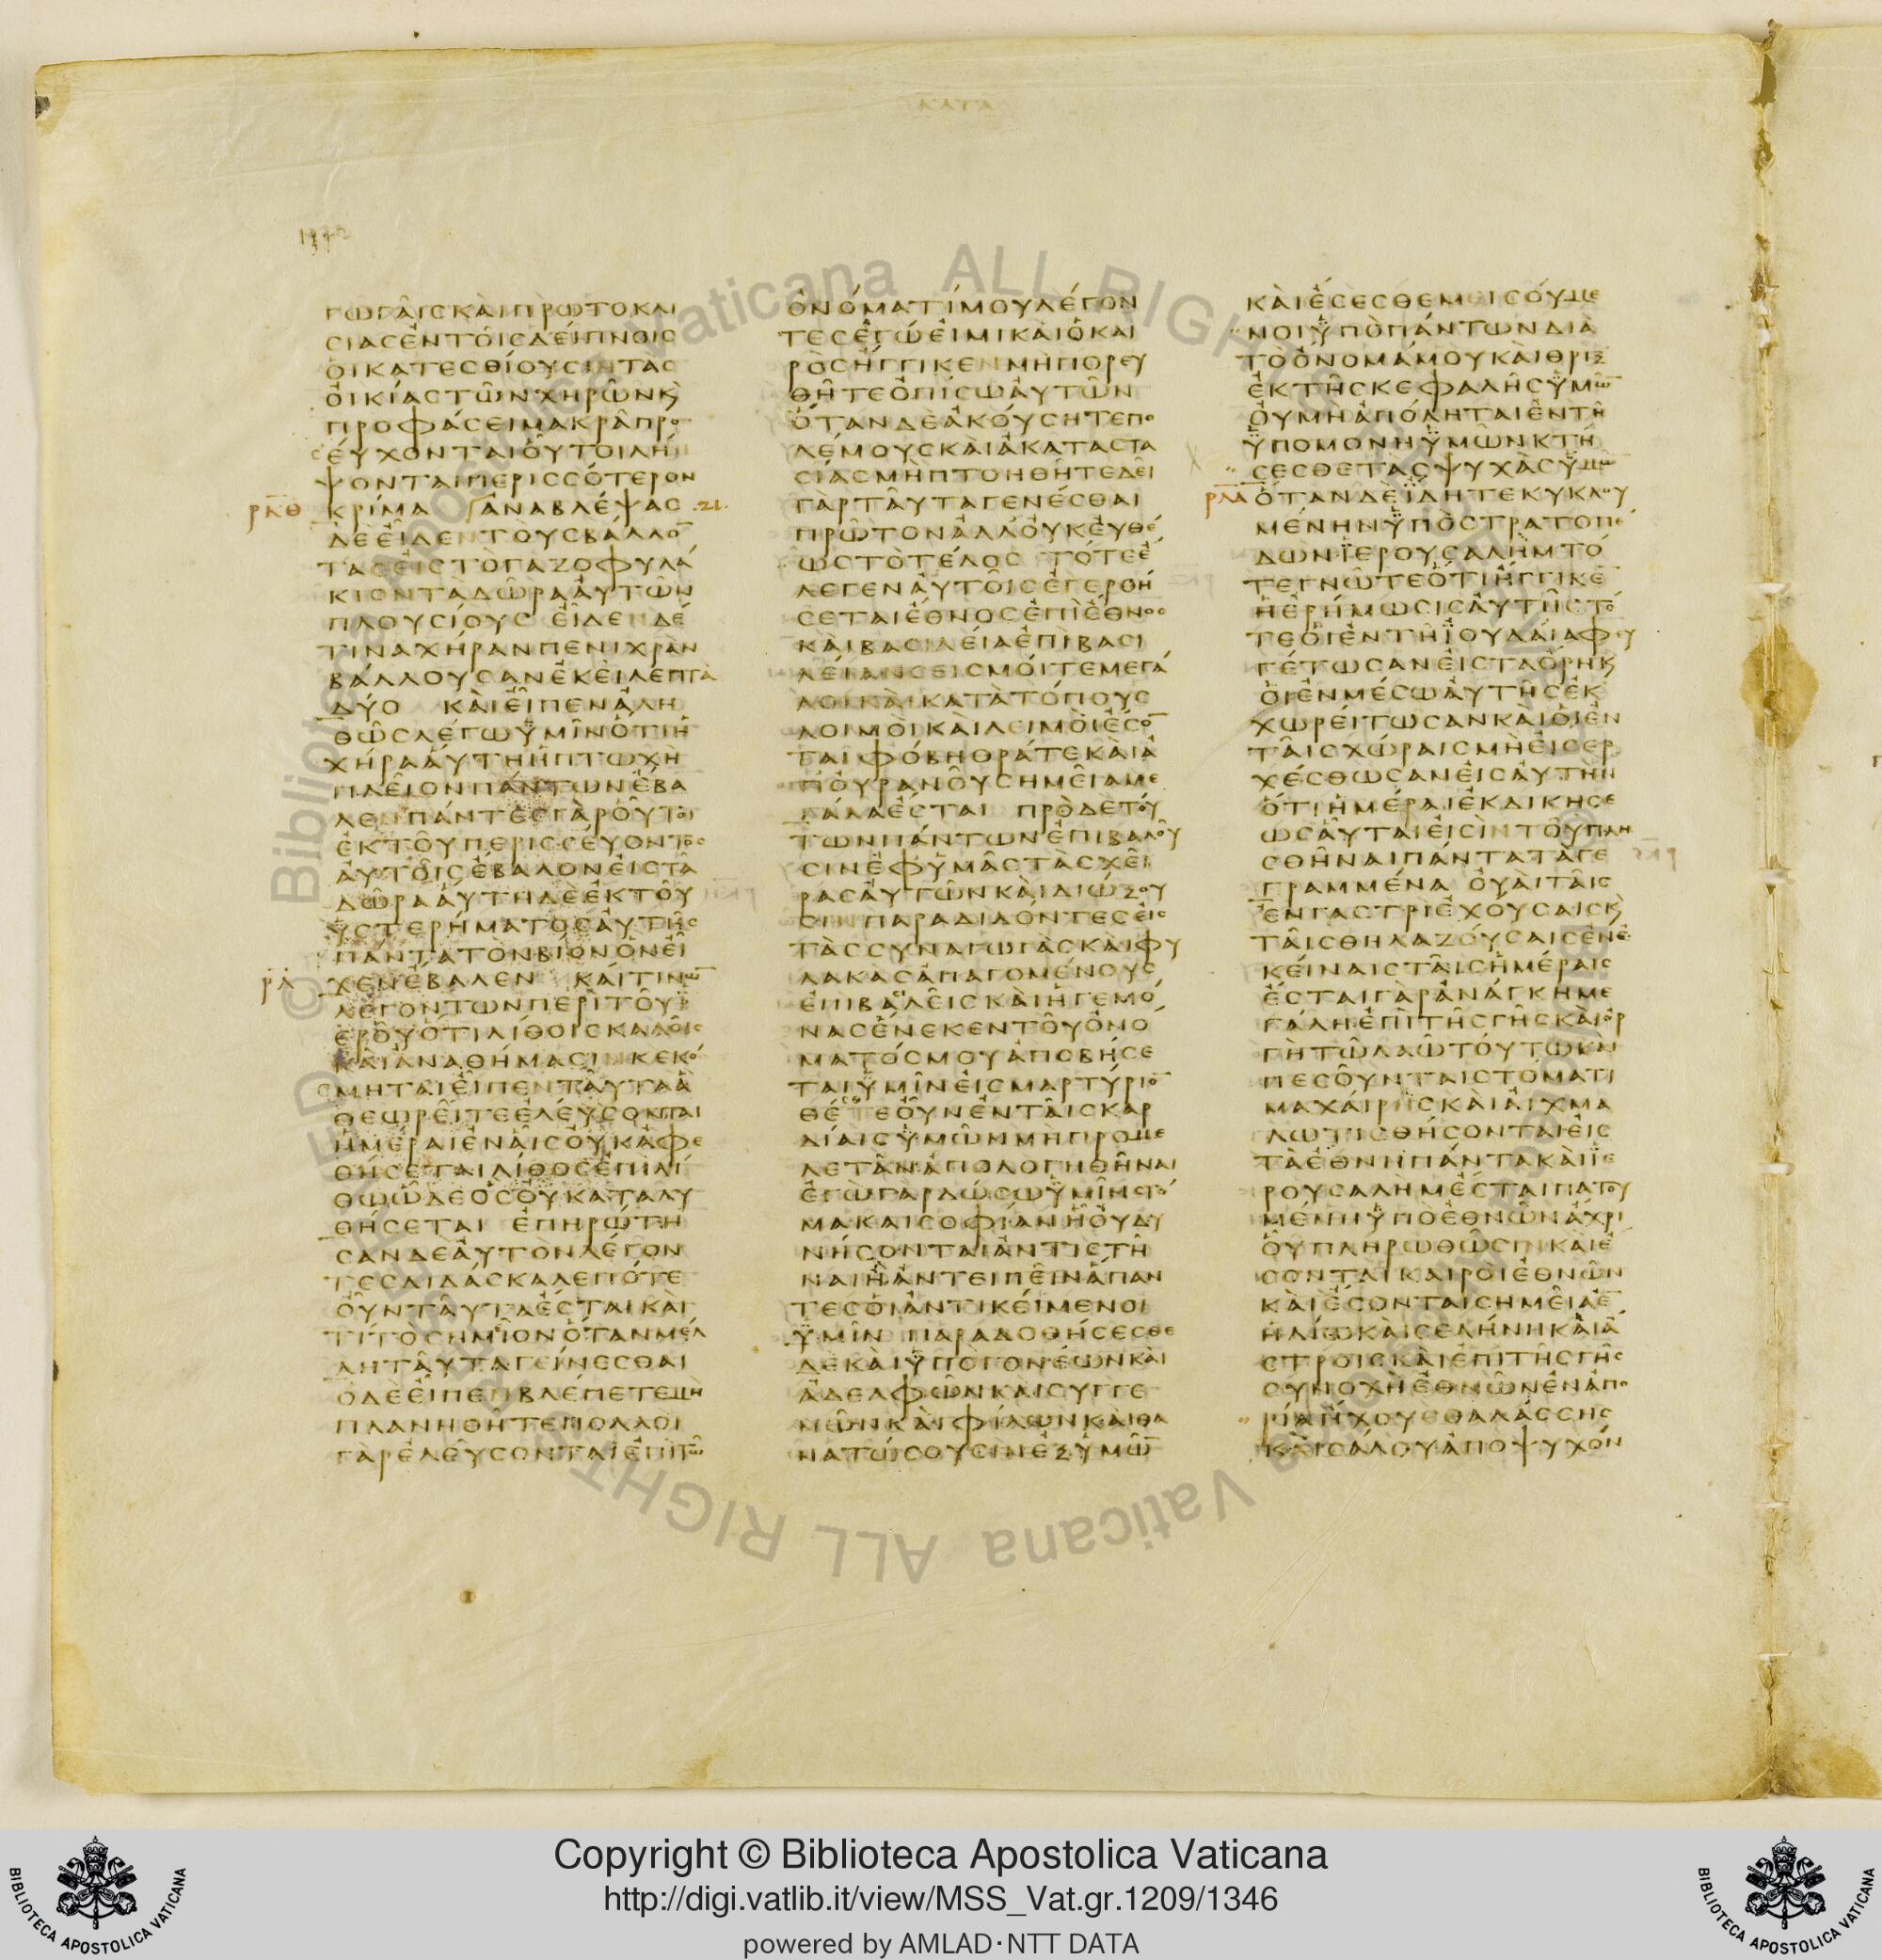 ΚΑΤΑ
ΓΩΓΑΙΣΚΑΙΠΡΩΤΟΚΛΙ
ΣΙΑΣΕΝΤΟΙΣΔΕΙΠΝΟΙΣ
ΟΙΚΑΤΕΣΘΙΟΥΣΙΝΤΑΣ
ΟΙΚΙΑΣΤΩΝΧΗΡΩΝΚ
ΠΡΟΦΑΣΕΙΜΑΚΡΑΠΡΟ
ΣΕΥΧΟΝΤΑΙΟΥΤΟΙΛΗ
ΨΟΝΤΑΙΠΕΡΙΣΣΟΤΕΡΟΝ
ΡΚΘ ΚΡΙΜΑ ΑΝΑΒΛΕΨΑΣ
ΔΕΕΙΔΕΝΤΟΥΣΒΑΛΛΟ̅
ΤΑΣΕΙΣΤΟΓΑΖΟΦΥΛΑ
ΚΙΟΝΤΑΔΩΡΑΑΥΤΩΝ
ΠΛΟΥΣΙΟΥΣ ΕΙΔΕΝΔΕ
ΤΙΝΑΧΗΡΑΝΠΕΝΙΧΡΑΝ
ΒΑΛΛΟΥΣΑΝΕΚΕΙΛΕΠΤΑ
ΔΥΟ ΚΑΙΕΙΠΕΝΑΛΗ
ΘΩΣΛΕΓΩΫΜΙΝΟΤΙΗ
ΧΗΡΑΑΥΤΗΗΠΤΩΧΗ
ΠΛΕΙΟΝΠΑΝΤΩΝΕΒΑ
ΛΕΝΠΑΝΤΕΣΓΑΡΟΥΤΟΙ
ΕΚΤΟΥΠΕΡΙΣΣΕΥΟΝΤΟΣ
ΑΥΤΟΙΣΕΒΑΛΟΝΕΙΣΤΑ
ΔΩΡΑΑΥΤΗΔΕΕΚΤΟΥ
ΥΣΤΕΡΗΜΑΤΟΣΑΥΤΗΣ
ΠΑΝΤΑΤΟΝΒΙΟΝΟΝΕΙ
ΡΛ ΧΕΝΕΒΑΛΕΝ ΚΑΙΤΙΝΩ̅
ΛΕΓΟΝΤΩΝΠΕΡΙΤΟΥΪ
ΕΡΟΥΟΤΙΛΙΘΟΙΣΚΑΛΟΙΣ
ΚΑΙΑΝΑΘΗΜΑΣΙΝΚΕΚΟ
ΣΜΗΤΑΙΕΙΠΕΝΤΑΥΤΑΑ
ΘΕΩΡΕΙΤΕΕΛΕΥΣΟΝΤΑΙ
ΗΜΕΡΑΙΕΝΑΙΣΟΥΚΑΦΕ
ΘΗΣΕΤΑΙΛΙΘΟΣΕΠΙΛΙ
ΘΩΩΔΕΟΣΟΥΚΑΤΑΛΥ
ΘΗΣΕΤΑΙ ΕΠΗΡΩΤΗ
ΣΑΝΔΕΑΥΤΟΝΛΕΓΟΝ
ΤΕΣΔΙΔΑΣΚΑΛΕΠΟΤΕ
ΟΥΝΤΑΥΤΑΕΣΤΑΙΚΑΙ
ΤΙΤΟΣΗΜΙΟΝΟΤΑΝΜΕΛ
ΛΗΤΑΥΤΑΓΕΙΝΕΣΘΑΙ
ΟΔΕΕΙΠΕΝΒΛΕΠΕΤΕΜΗ
ΠΛΑΝΗΘΗΤΕΠΟΛΛΟΙ
ΓΑΡΕΛΕΥΣΟΝΤΑΙΕΠΙΤΩ
ΟΝΟΜΑΤΙΜΟΥΛΕΓΟΝ
ΤΕΣΕΓΩΕΙΜΙΚΑΙΟΚΑΙ
ΡΟΣΗΓΓΙΚΕΝΜΗΠΟΡΕΥ
ΘΗΤΕΟΠΙΣΩΑΥΤΩΝ
ΟΤΑΝΔΕΑΚΟΥΣΗΤΕΠΟ
ΛΕΜΟΥΣΚΑΙΑΚΑΤΑΣΤΑ
ΣΙΑΣΜΗΠΤΟΗΘΗΤΕΔΕΙ
ΓΑΡΤΑΥΤΑΓΕΝΕΣΘΑΙ
ΠΡΩΤΟΝΑΛΛΟΥΚΕΥΘΕ
ΩΣΤΟΤΕΛΟΣ ΤΟΤΕΕ
ΛΕΓΕΝΑΥΤΟΙΣΕΓΕΡΘΗ
ΣΕΤΑΙΕΘΝΟΣΕΠΙΕΘΝΟΣ
ΚΑΙΒΑΣΙΛΕΙΑΕΠΙΒΑΣΙ
ΛΕΙΑΝΣΕΙΣΜΟΙΤΕΜΕΓΑ
ΛΟΙΚΑΙΚΑΤΑΤΟΠΟΥΣ
ΛΟΙΜΟΙΚΑΙΛΕΙΜΟΙΕΣΟ̅
ΤΑΙΦΟΒΗΘΡΑΤΕΚΑΙΑ
ΠΟΥΡΑΝΟΥΣΗΜΕΙΑΜΕ
ΓΑΛΑΕΣΤΑΙ ΠΡΟΔΕΤΟΥ
ΤΩΝΠΑΝΤΩΝΕΠΙΒΑΛΟΥ
ΣΙΝΕΦΥΜΑΣΤΑΣΧΕΙ
ΡΑΣΑΥΤΩΝΚΑΙΔΙΩΞΟΥ
ΣΙΝΠΑΡΑΔΙΔΟΝΤΕΣΕΙΣ
ΤΑΣΣΥΝΑΓΩΓΑΣΚΑΙΦΥ
ΛΑΚΑΣΑΠΑΓΟΜΕΝΟΥΣ
ΕΠΙΒΑΣΙΛΕΙΣΚΑΙΗΓΕΜΟ
ΝΑΣΕΝΕΚΕΝΤΟΥΟΝΟ
ΜΑΤΟΣΜΟΥΑΠΟΒΗΣΕ
ΤΑΙΫΜΙΝΕΙΣΜΑΡΤΥΡΙΟ̅
ΘΕΤΕΟΥΝΕΝΤΑΙΣΚΑΡ
ΔΙΑΙΣΫΜΩΝΜΗΠΡΟΜΕ
ΛΕΤΑΝΑΠΟΛΟΓΗΘΗΝΑΙ
ΕΓΩΓΑΡΔΩΣΩΫΜΙΝΣΤΟ
ΜΑΚΑΙΣΟΦΙΑΝΗΟΥΔΥ
ΝΗΣΟΝΤΑΙΑΝΤΙΣΤΗ
ΝΑΙΗΑΝΤΕΙΠΕΙΝΑΠΑΝ
ΤΕΣΟΙΑΝΤΙΚΕΙΜΕΝΟΙ
ΫΜΙΝ ΠΑΡΑΔΟΘΗΣΕΣΘΕ
ΔΕΚΑΙΫΠΟΓΟΝΕΩΝΚΑΙ
ΑΔΕΛΦΩΝΚΑΙΣΥΓΓΕ
ΝΩΝΚΑΙΦΙΛΩΝΚΑΙΘΑ
ΝΑΤΩΣΟΥΣΙΝΕΞΥΜΩ̅
ΚΑΙΕΣΕΣΘΕΜΕΙΣΟΥΜΕ
ΝΟΙΫΠΟΠΑΝΤΩΝΔΙΑ
ΤΟΟΝΟΜΑΜΟΥΚΑΙΘΡΙΞ
ΕΚΤΗΣΚΕΦΑΛΗΣΫΜΩ̅
ΟΥΜΗΑΠΟΛΗΤΑΙΕΝΤΗ
ΫΠΟΜΟΝΗΫΜΩΝΚΤΗ
ΣΕΣΘΕΤΑΣΨΥΧΑΣΫΜΩ̅
ΡΛΑ ΟΤΑΝΔΕΪΔΗΤΕΚΥΚΛΟΥ
ΜΕΝΗΝΫΠΟΣΤΡΑΤΟΠΕ
ΔΩΝΪΕΡΟΥΣΑΛΗΜΤΟ
ΤΕΓΝΩΤΕΟΤΙΗΓΓΙΚΕ̅
ΗΕΡΗΜΩΣΙΣΑΥΤΗΣΤΟ
ΤΕΟΙΕΝΤΗΪΟΥΔΑΙΑΦΕΥ
ΓΕΤΩΣΑΝΕΙΣΤΑΟΡΗΚ
ΟΙΕΝΜΕΣΩΑΥΤΗΣΕΚ
ΧΩΡΕΙΤΩΣΑΝΚΑΙΟΙΕΝ
ΤΑΙΣΧΩΡΑΙΣΜΗΕΙΣΕΡ
ΧΕΣΘΩΣΑΝΕΙΣΑΥΤΗΝ
ΟΤΙΗΜΕΡΑΙΕΚΔΙΚΗΣΕ
ΩΣΑΥΤΑΙΕΙΣΙΝΤΟΥΠΛΗ
ΣΘΗΝΑΙΠΑΝΤΑΤΑΓΕ
ΓΡΑΜΜΕΝΑ ΟΥΑΙΤΑΙΣ
ΕΝΓΑΣΤΡΙΕΧΟΥΣΑΙΣΚ
ΤΑΙΣΘΗΛΑΖΟΥΣΑΙΣΕΝΕ
ΚΕΙΝΑΙΣΤΑΙΣΗΜΕΡΑΙΣ
ΕΣΤΑΙΓΑΡΑΝΑΓΚΗΜΕ
ΓΑΛΗΕΠΙΤΗΣΓΗΣΚΑΙΟΡ
ΓΗΤΩΛΑΩΤΟΥΤΩΚΑΙ
ΠΕΣΟΥΝΤΑΙΣΤΟΜΑΤΙ
ΜΑΧΑΙΡΗΣΚΑΙΑΙΧΜΑ
ΛΩΤΙΣΘΗΣΟΝΤΑΙΕΙΣ
ΤΑΕΘΝΗΠΑΝΤΑΚΑΙΪΕ
ΡΟΥΣΑΛΗΜΕΣΤΑΙΠΑΤΟΥ
ΜΕΝΗΫΠΟΕΘΝΩΝΑΧΡΙ
ΟΥΠΛΗΡΩΘΩΣΙΝΚΑΙΕ
ΣΟΝΤΑΙΚΑΙΡΟΙΕΘΝΩΝ
ΚΑΙΕΣΟΝΤΑΙΣΗΜΕΙΑΕ̅
ΗΛΙΩΚΑΙΣΕΛΗΝΗΚΑΙΑ
ΣΤΡΟΙΣΚΑΙΕΠΙΤΗΣΓΗΣ
ΣΥΝΟΧΗΕΘΝΩΝΕΝΑΠΟ
ΡΙΑΗΧΟΥΣΘΑΛΑΣΣΗΣ
ΚΑΙΣΑΛΟΥΑΠΟΨΥΧΟΝ
Copyright © Biblioteca Apostolica Vaticana
http://digi.vatlib.it/view/MSS_Vat.gr.1209/1346
powered by AMLAD·NTT DATA
BIBLIOTECA APOSTOLICA VATICANA
BIBLIOTECA APOSTOLICA VATICANA